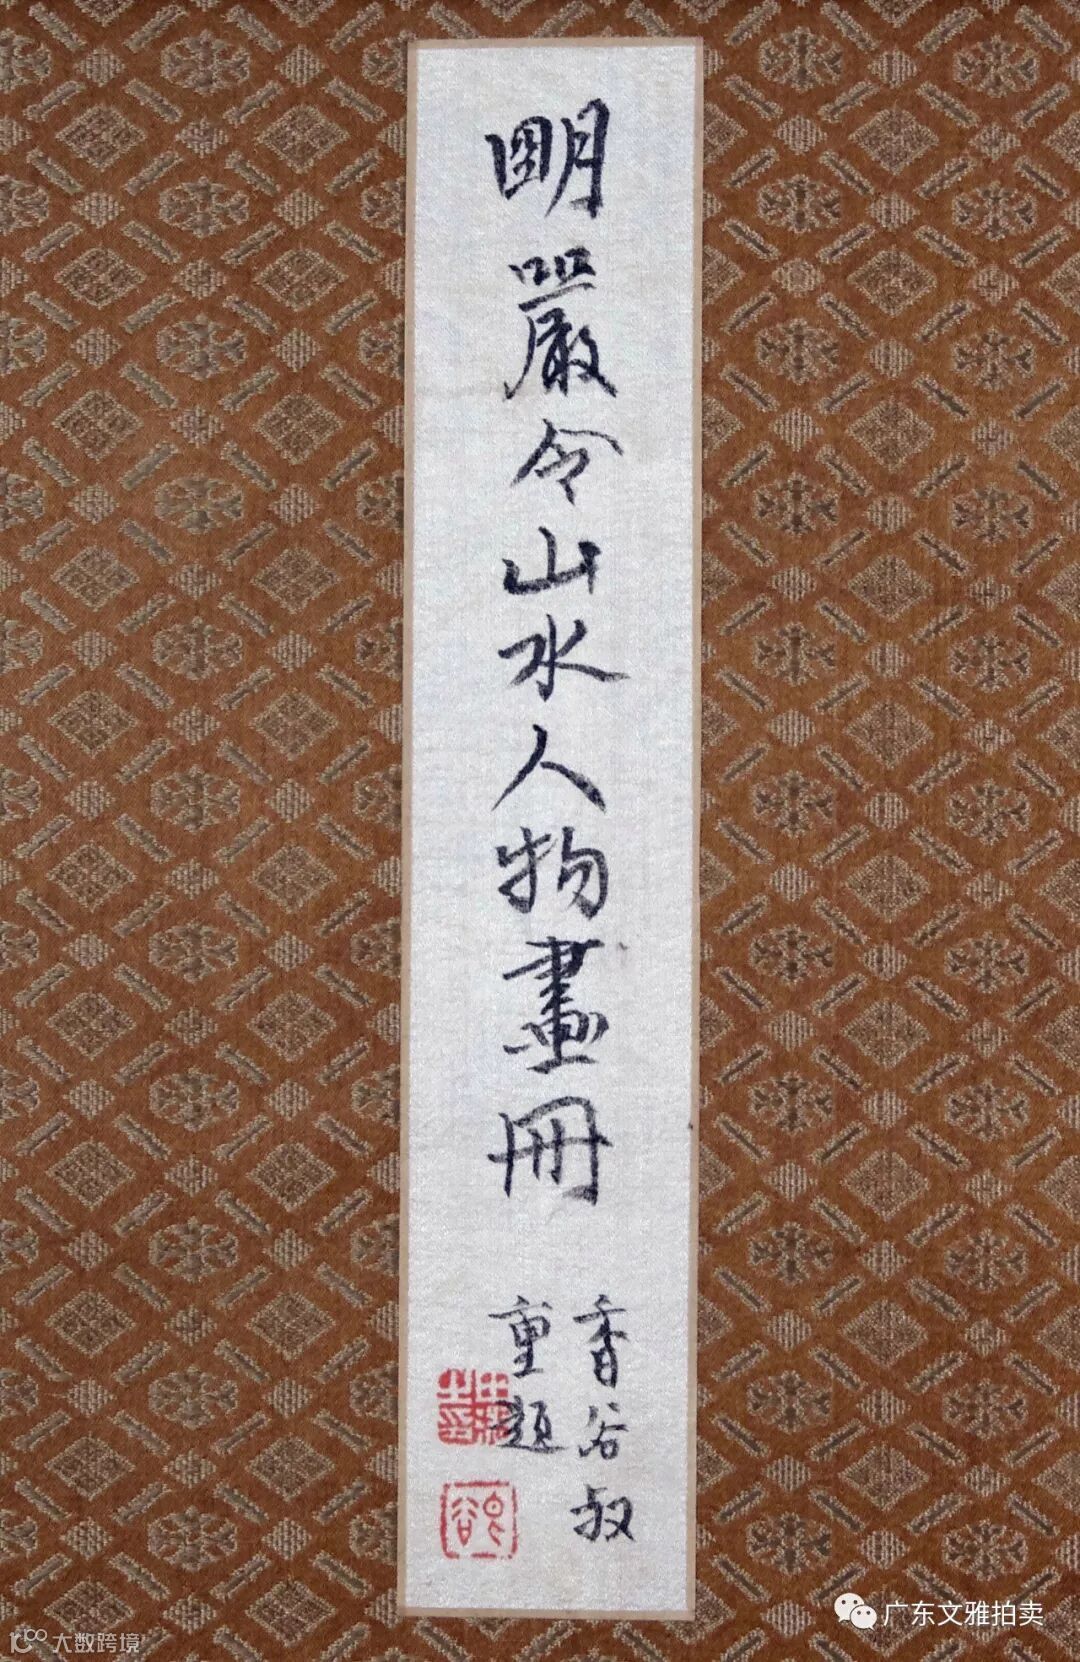 明嚴令山水人物畫冊
香谷叔
重題
广东文雅拍卖
大数跨境